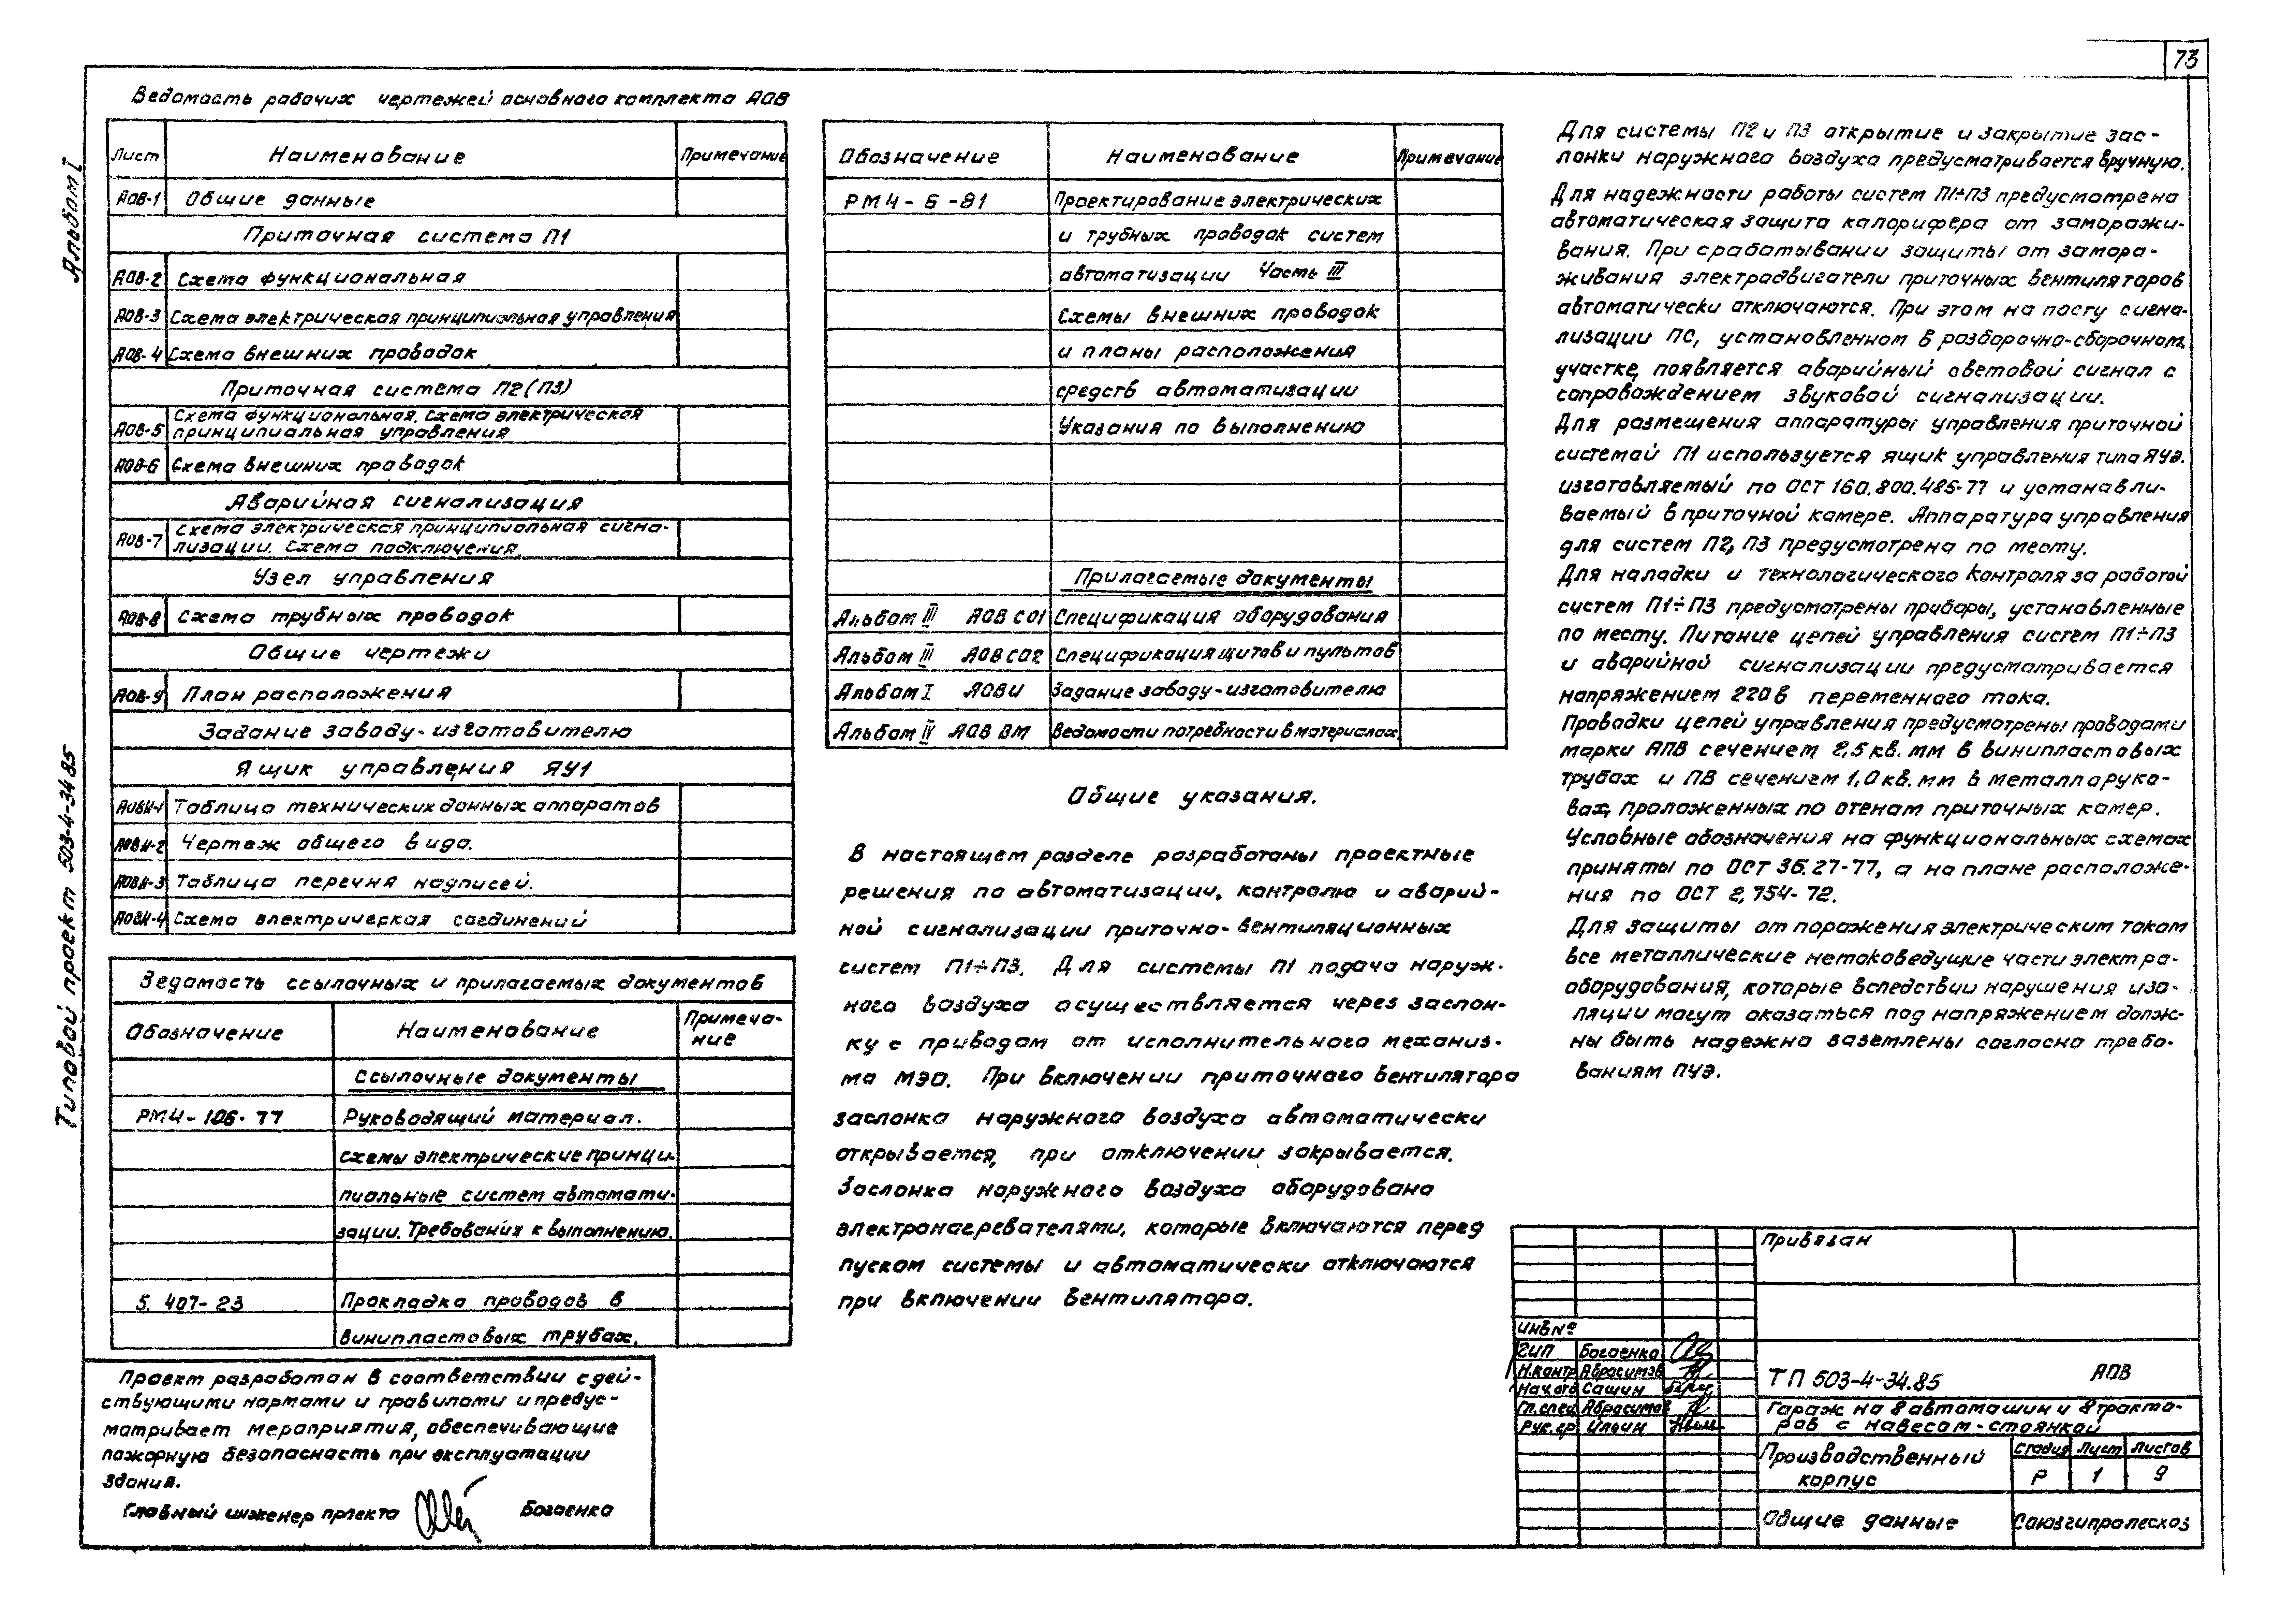 73
Альбом I
Типовой проект 503-4-34 85
Ведомость рабочих чертежей основного комплекта АОВ
Лист Наименование Примечание
АОВ-1 Общие данные
Приточная система П1
АОВ-2 Схема функциональная
АОВ-3 Схема электрическая принципиальная управления
АОВ-4 Схема внешних проводок
Приточная система П2(П3)
Схема функциональная. Схема электрическая
АОВ-5 принципиальная управления
АОВ-6 Схема внешних проводок
Аварийная сигнализация
Схема электрическая принципиальная сигна-
АОВ-7 лизации. Схема подключения.
Узел управления
АОВ-8 Схема трубных проводок
Общие чертежи
АОВ-9 План расположения
Задание заводу-изготовителю
Ящик управления ЯУ1
АОВИ-1 Таблица технических данных аппаратов
АОВИ-2 Чертеж общего вида.
АОВИ-3 Таблица перечня надписей.
АОВИ-4 Схема электрическая соединений
Ведомость ссылочных и прилагаемых документов
Обозначение Наименование Примеча-
ние
Ссылочные документы
РМ4-106-77 Руководящий материал.
схемы электрические принци-
пиальные систем автомати-
зации. Требования к выполнению.
5.407-23 Прокладка проводов в
винипластовых трубах.
Проект разработан в соответствии с дей-
ствующими нормами и правилами и предус-
матривает мероприятия, обеспечивающие
пожарную безопасность при эксплуатации
здания.
Главный инженер прлекта Богаенко
Обозначение Наименование Примечание
РМ4-6-81 Проектирование электрических
и трубных проводок систем
автоматизации Часть III
Схемы внешних проводок
и планы расположения
средств автоматизации
Указания по выполнению
Прилагаемые документы
Альбом III АОВ СО1 Спецификация оборудования
Альбом III АОВ СО2 Спецификация щитов и пультов
Альбом I АОВИ Задание заводу-изготовителю
Альбом IV АОВ ВМ Ведомости потребности в материалах
Общие указания.
В настоящем разделе разработаны проектные
решения по автоматизации, контролю и аварий-
ной сигнализации приточно-вентиляционных
систем П1÷П3. Для системы П1 подача наруж-
ного воздуха осуществляется через заслон-
ку с приводом от исполнительного механиз-
ма МЭО. При включении приточного вентилятора
заслонка наружного воздуха автоматически
открывается, при отключении закрывается.
Заслонка наружного воздуха оборудована
электронагревателями, которые включаются перед
пуском системы и автоматически отключаются
при включении вентилятора.
Для системы П2 и П3 открытие и закрытие зас-
лонки наружного воздуха предусматривается вручную.
Для надежности работы систем П1÷П3 предусмотрена
автоматическая защита калорифера от заморажи-
вания. При срабатывании защиты от замора-
живания электродвигатели приточных вентиляторов
автоматически отключаются. При этом на посту сигна-
лизации ПС, установленном в разборочно-сборочном
участке, появляется аварийный световой сигнал с
сопровождением звуковой сигнализации.
Для размещения аппаратуры управления приточной
системой П1 используется ящик управления типа ЯУЭ.
изготовляемый по ОСТ 160.800.485-77 и устанавли-
ваемый в приточной камере. Аппаратура управления
для систем П2, П3 предусмотрена по месту.
Для наладки и технологического контроля за работой
систем П1÷П3 предусмотрены приборы, установленные
по месту. Питание цепей управления систем П1÷П3
и аварийной сигнализации предусматривается
напряжением 220в переменного тока.
Проводки цепей управления предусмотрены проводами
марки АПВ сечением 2,5 кв. мм в винипластовых
трубах и ПВ сечением 1,0 кв. мм в металлоруко-
вах, проложенных по стенам приточных камер.
Условные обозначения на функциональных схемах
приняты по ОСТ 36.27-77, а на плане расположе-
ния по ОСТ 2,754-72.
Для защиты от поражения электрическим током
все металлические нетоковедущие части электро-
оборудования, которые вследствии нарушения изо-
ляции могут оказаться под напряжением долж-
ны быть надежно заземлены согласно требо-
ваниям ПУЭ.
Привязан
Инв №
ГИП Богаенко
Н.контр Абросимов
Нач.отд Сашин
Гл.спец Абросимов
Рук.гр Ильин
ТП 503-4-34.85 АОВ
Гараж на 8 автомашин и 8 тракто-
ров с навесом-стоянкой
Производственный
корпус
Стадия Лист Листов
Р 1 9
Общие данные
Союзгипролесхоз